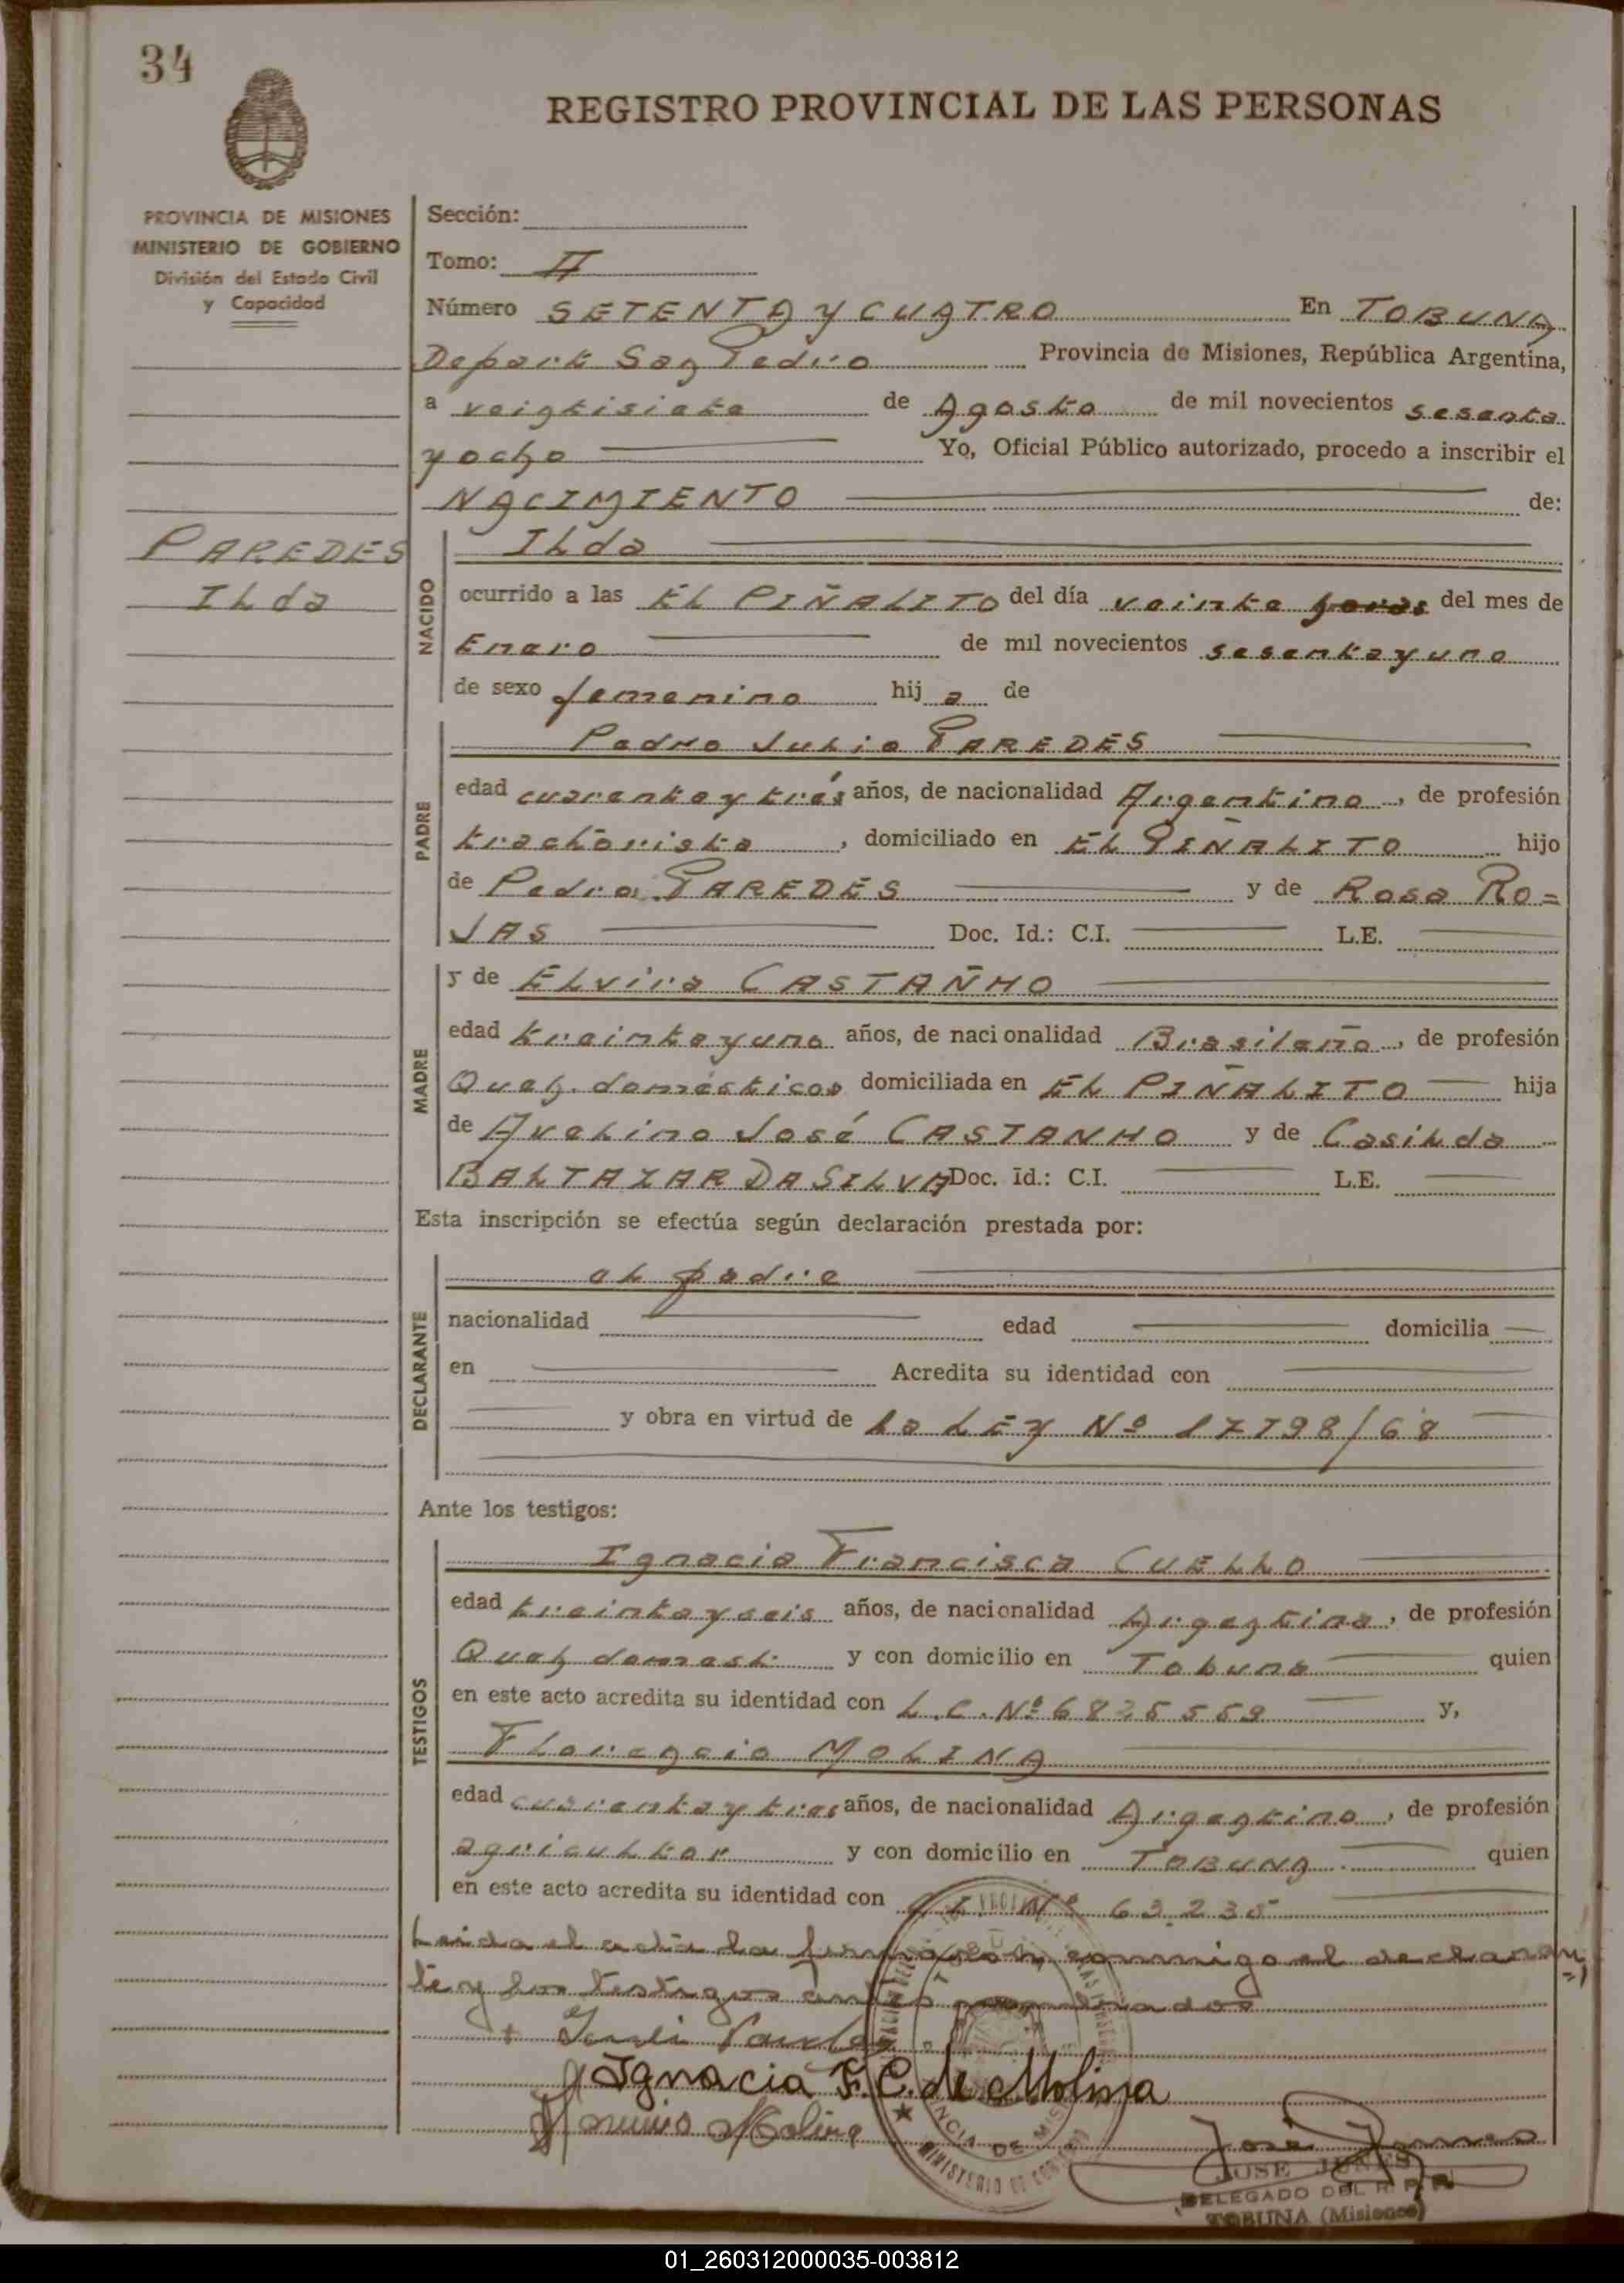 34
REGISTRO PROVINCIAL DE LAS PERSONAS
PROVINCIA DE MISIONES
MINISTERIO DE GOBIERNO
División del Estado Civil
y Capacidad
PAREDES
Ilda
Sección:
Tomo: II
Número SETENTA Y CUATRO En TOBUNA
Depart. San Pedro Provincia de Misiones, República Argentina,
a veintisiete de Agosto de mil novecientos sesenta
y ocho Yo, Oficial Público autorizado, procedo a inscribir el
NACIMIENTO de:
NACIDO
Ilda
ocurrido a las EL PIÑALITO del día veinte horas del mes de
Enero de mil novecientos sesenta y uno
de sexo femenino hij a de
PADRE
Pedro Julio PAREDES
edad cuarenta y trés años, de nacionalidad Argentino, de profesión
tractorista, domiciliado en EL PIÑALITO hijo
de Pedro PAREDES y de Rosa RO=
JAS Doc. Id.: C.I. L.E.
MADRE
y de Elvira CASTAÑHO
edad treinta y uno años, de nacionalidad Brasileña, de profesión
Queh. domésticos domiciliada en EL PIÑALITO hija
de Avelino José CASTANHO y de Casilda
BALTAZAR DA SILVA Doc. Id.: C.I. L.E.
Esta inscripción se efectúa según declaración prestada por:
DECLARANTE
el padre
nacionalidad edad domicilia
en Acredita su identidad con
y obra en virtud de la LEY Nº 17798/68
Ante los testigos:
TESTIGOS
Ignacia Francisca CUELLO
edad treinta y seis años, de nacionalidad Argentina, de profesión
Queh domest. y con domicilio en Tobuna quien
en este acto acredita su identidad con L.C. Nº 6825559 y,
Florencio MOLINA
edad cuarenta y tres años, de nacionalidad Argentino, de profesión
agricultor y con domicilio en TOBUNA. quien
en este acto acredita su identidad con Nº 63.235
Leida el acta la firmaron conmigo el declaran=
te y los testigos antes nombrados
Ignacia F. C. de Molina
Molina
JOSE JUNES
DELEGADO DEL R. P. P.
TOBUNA (Misiones)
01_260312000035-003812